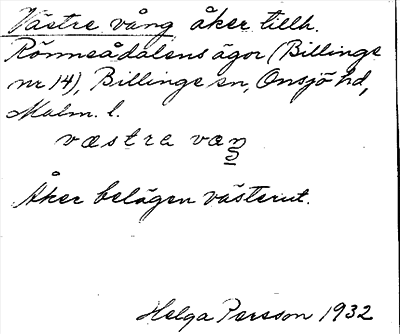 Västre vång åker tillh.
Rönneådalens ägor (Billinge
nr 14), Billinge sn, Onsjö hd,
Malm. l.
væstra væŋ
Åker belägen västerut.
Helga Persson 1932